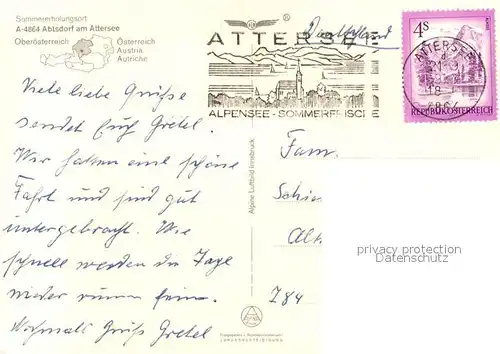 Sommererholungsort
A-4864 Abtsdorf am Attersee
Oberösterreich Österreich
Austria
Autriche
Deutschland
ATTERSEE
ALPENSEE - SOMMERFRISCHE
4 S
REPUBLIK ÖSTERREICH
ATTERSEE
4864
Viele liebe Grüße
sendet Euch Gretel.
Wir hatten eine schöne
Fahrt und sind gut
untergebracht. Wie
schnell werden die Tage
wieder rum sein.
Nochmals Gruß Gretel
Alpine Luftbild Innsbruck
Fam.
Schi
Al
Z84
privacy protection
Datenschutz